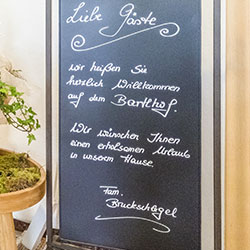 Liebe Gäste
wir heißen Sie
herzlich Willkommen
auf dem Bartlhof.
Wir wünschen Ihnen
einen erholsamen Urlaub
in unserem Hause
Fam.
Bruckschlögel